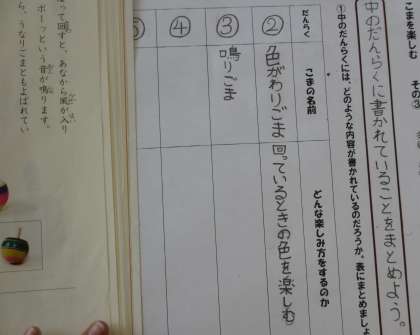 こまを楽しむ その③
中のだんらくに書かれていることをまとめよう。
①中のだんらくには、どのような内容が書かれているのだろうか。表にまとめましょ
だんらく こまの名前 どんな楽しみ方をするのか
② 色がわりごま 回っているときの色を楽しむ
③ 鳴りごま
④
⑤
って回すと、あなから風が入り
ボーっという音が鳴ります。
ら、うなりごまともよばれてい